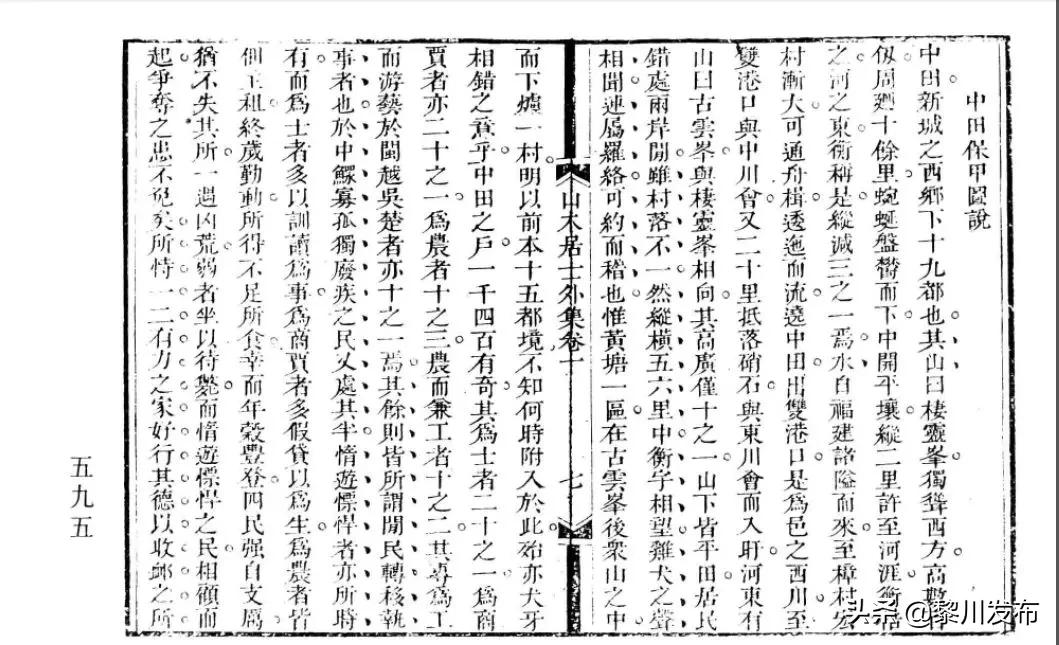 中田保甲圖說
中田新城之西鄉下十九都也其山曰棲靈峯獨聳西方高數百
仭周廻十餘里蜿蜒盤礴而下中開平壤縱二里許至河涯衡
之河之東衡稱是縱減三之一焉水自福建諸隘而來至樟村
村漸大可通舟楫透迤而流遶中田出雙港口是爲邑之西川至
雙港口與中川會又二十里抵落硝石與東川會而入盱河東有
山曰古雲峯與棲靈峯相向其高廣僅十之一山下皆平田居民
錯處兩岸開雖村落不一然縱橫五六里中衡宇相望雞犬之聲
相聞連屬羅絡可約而稽也惟黃塘一區在古雲峯後衆山之中
山木居士外集卷一
七
而下爐一村明以前本十五都境不知何時附入於此殆亦犬牙
相錯之意乎中田之戶一千四百有奇其爲士者二十之一爲商
賈者亦二十之一爲農者十之三農而兼工者十之二其專爲工
而游藝於閩越吳楚者亦十之一焉其餘則皆所謂閒民轉移執
事者也於中鰥寡孤獨廢疾之民又處其半惰遊慓悍者亦所時
有而爲士者多以訓讀爲事爲商賈者多假貸以爲生爲農者皆
佃主租終歲勤動所得不足所食幸而年穀豐登四民强自支厲
猶不失其所一遇凶荒弱者坐以待斃而惰遊慓悍之民相顧而
起爭奪之患不免矣所恃一二有力之家好行其德以收卹之所
五九五
头条@黎川发布